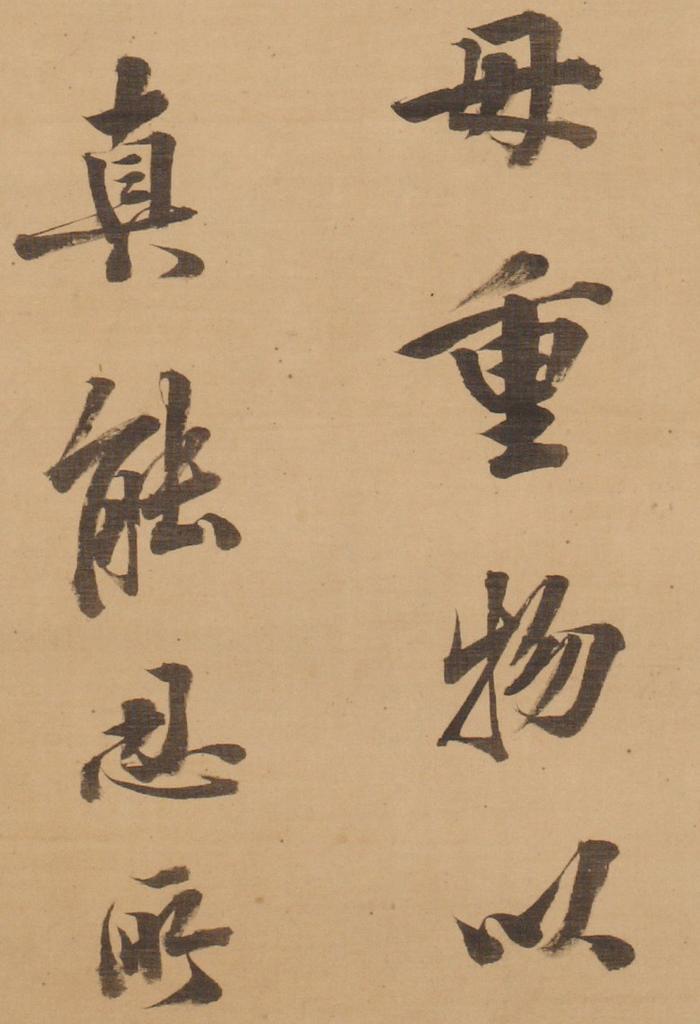 毋重物以
真能忍所